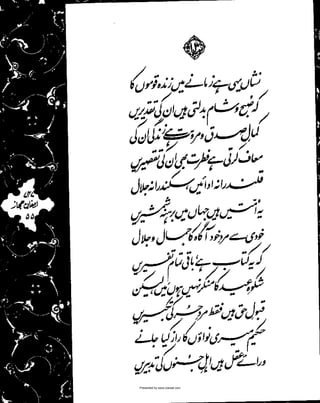 ۱۳
نشاں یہی ہے زمانے میں زندہ قوموں کا
کہ صبح و شام بدلتی ہیں ان کی تقدیریں
کمالِ صدق و مروت ہے زندگی ان کی
معاف کرتی ہے فطرت بھی ان کی تقصیریں
قلندرانہ ادائیں، سکندرانہ جلال
یہ اُمتیں ہیں جہاں میں برہنہ شمشیریں
خودی سے مردِ خود آگاہ کا جمال و جلال
کہ یہ کتاب ہے، باقی تمام تفسیریں
شکوہِ عید کا منکر نہیں ہوں میں، لیکن
قبولِ حق ہیں فقط مردِ حُر کی تکبیریں
حکیم میری نواؤں کا راز کیا جانے
ورائے عقل ہیں اہلِ جنوں کی تدبیریں
ارمغانِ حجاز
۵۵